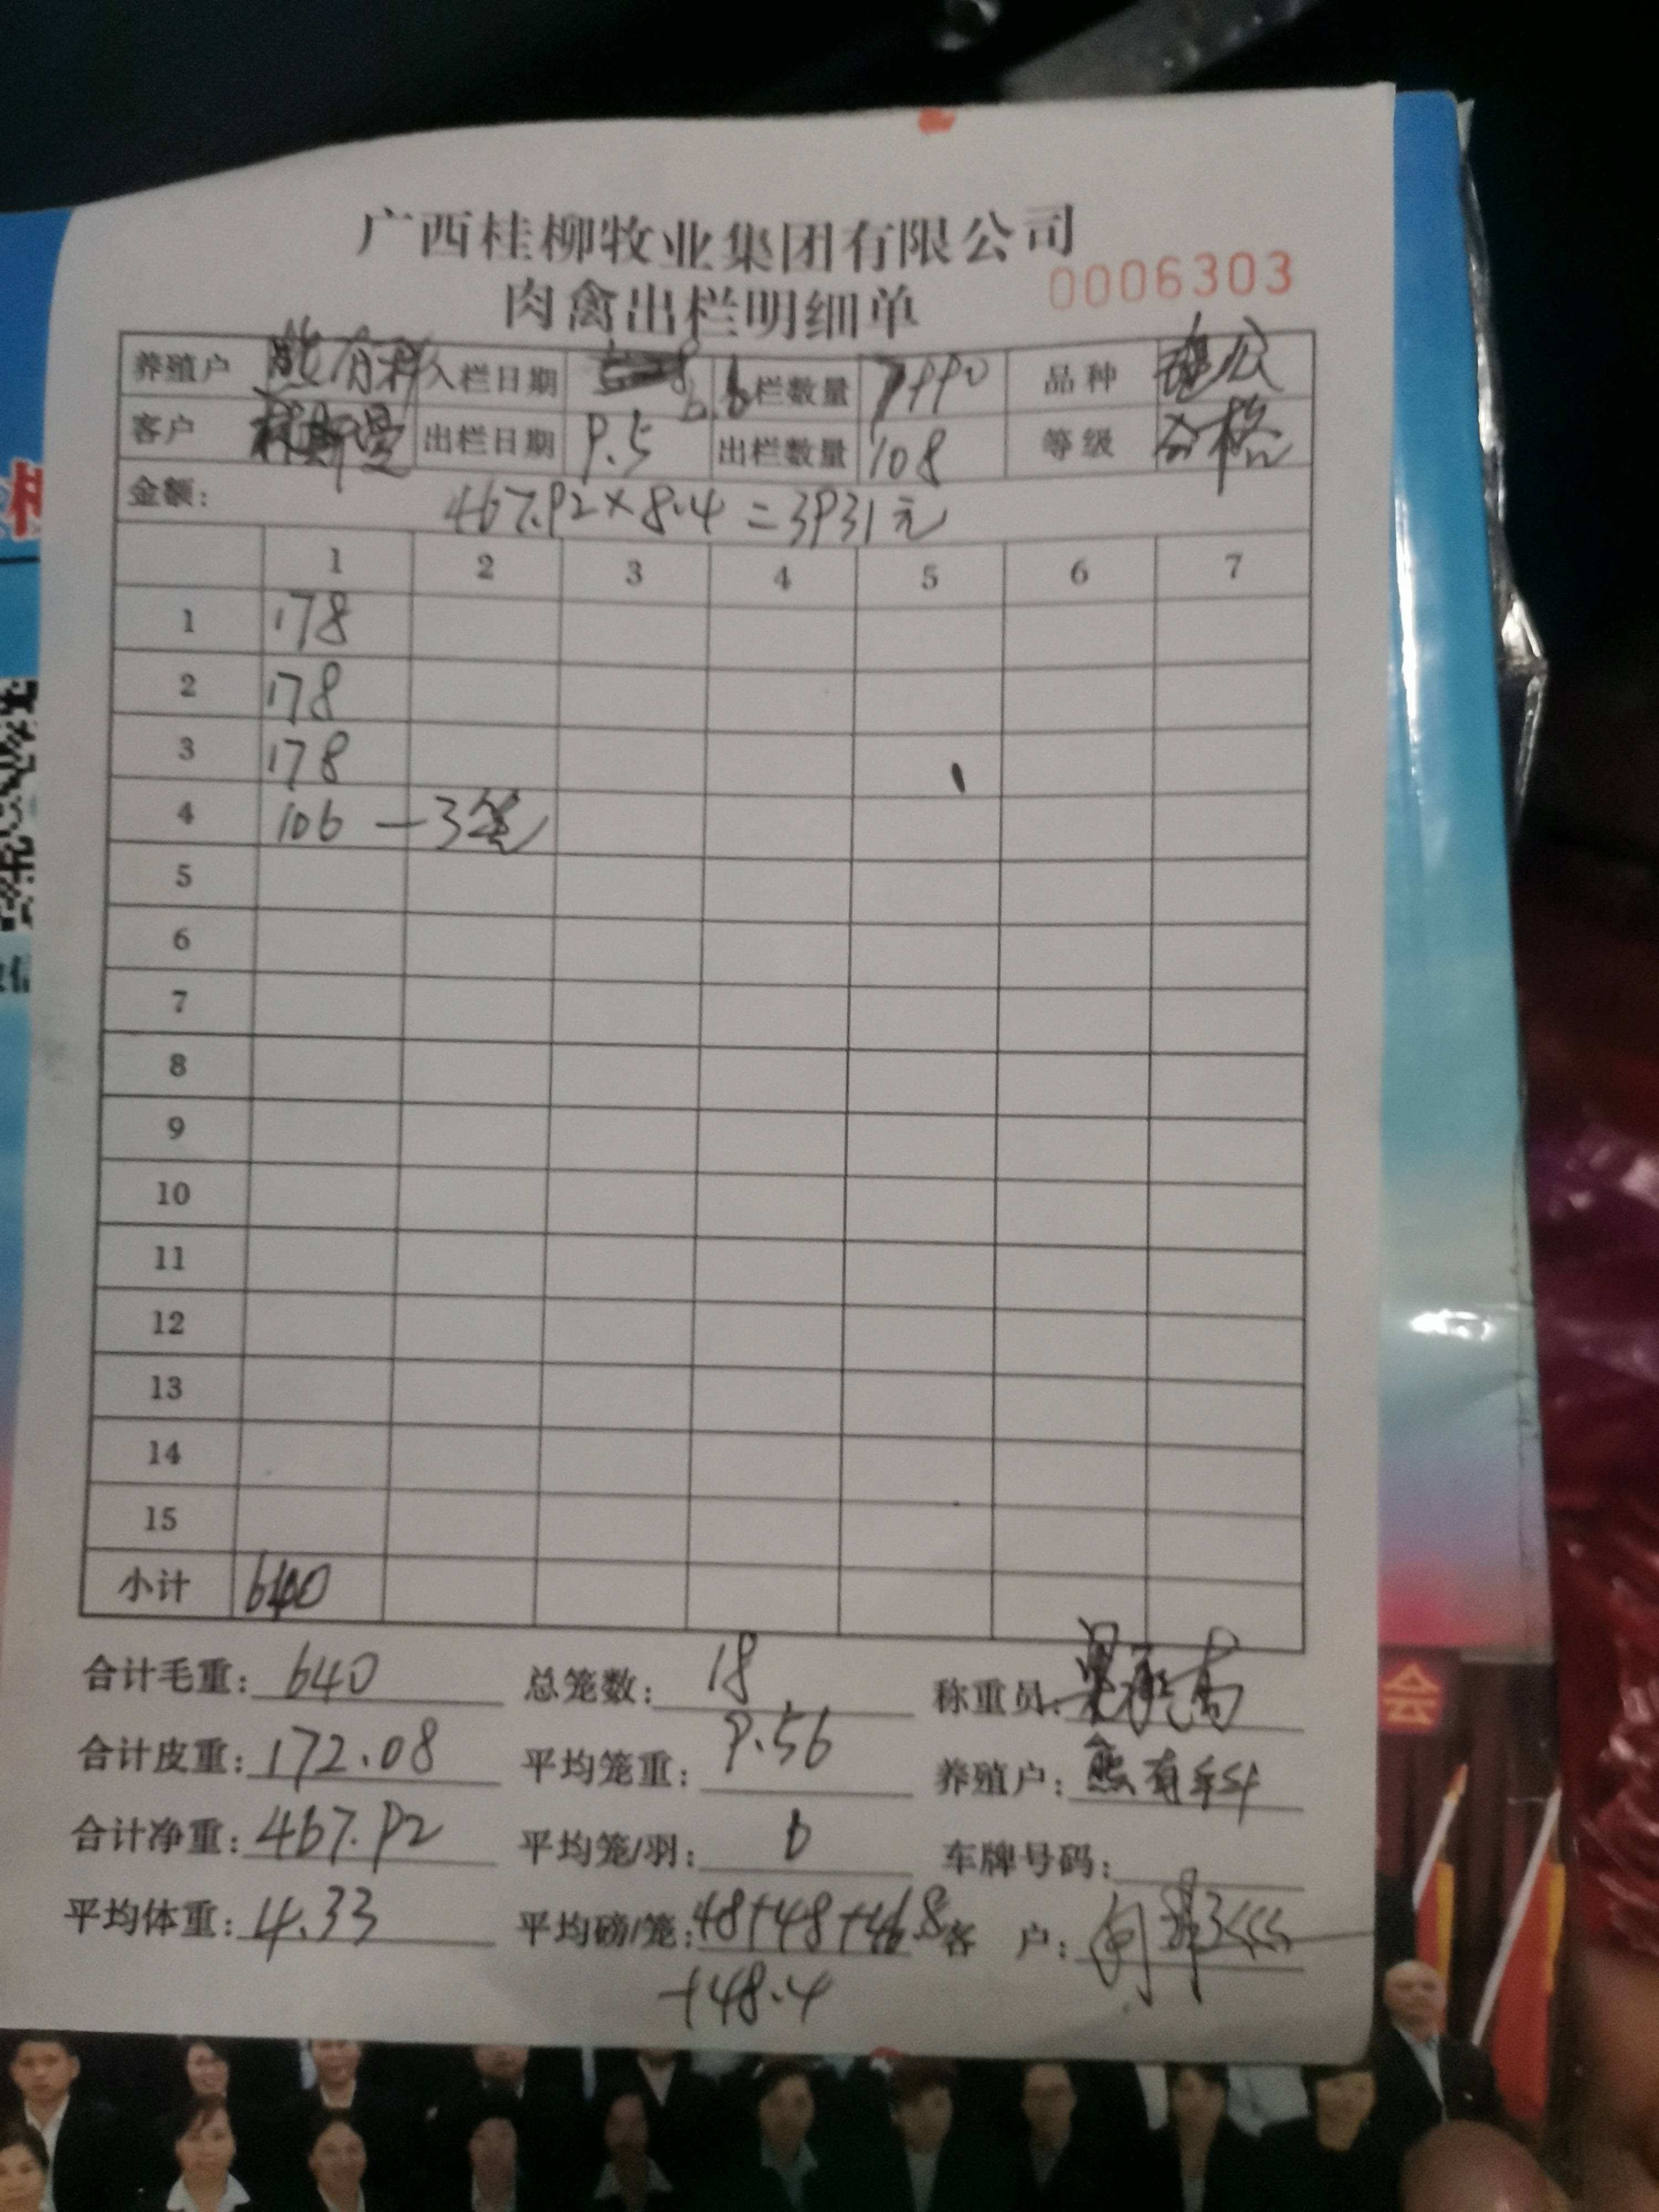 广西桂柳牧业集团有限公司
肉禽出栏明细单 0006303
养殖户 熊有科 入栏日期 6.6 栏数量 7990 品种
客户 出栏日期 9.5 出栏数量 108 等级 合格
金额: 467.92×8.4=3931元
1 2 3 4 5 6 7
1 178
2 178
3 178
4 106 — 3笼
5
6
7
8
9
10
11
12
13
14
15
小计 640
合计毛重: 640 总笼数: 18 称重员:
合计皮重: 172.08 平均笼重: 9.56 养殖户: 熊有科
合计净重: 467.92 平均笼/羽: 6 车牌号码:
平均体重: 4.33 平均磅/笼: 48+48+46.8 客 户:
+48.4
会